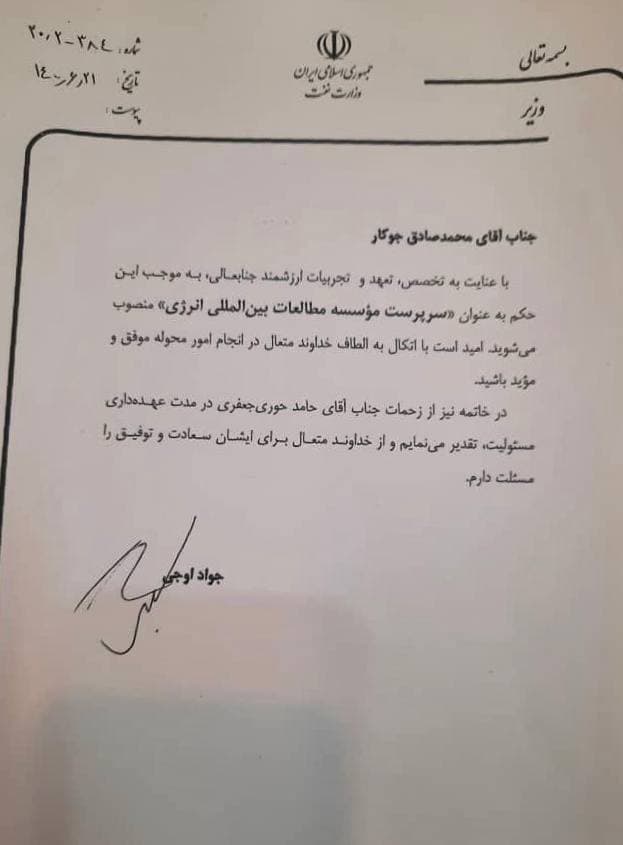 بسمه تعالی
جمهوری اسلامی ایران
وزارت نفت
وزیر
شماره: ۳۸۴-۲۰/۲
تاریخ: ۱۴۰۰/۶/۲۱
پیوست:
جناب آقای محمدصادق جوکار
با عنایت به تخصص، تعهد و تجربیات ارزشمند جنابعالی، به موجب این
حکم به عنوان «سرپرست مؤسسه مطالعات بین‌المللی انرژی» منصوب
می‌شوید. امید است با اتکال به الطاف خداوند متعال در انجام امور محوله موفق و
مؤید باشید.
در خاتمه نیز از زحمات جناب آقای حامد حوری‌جعفری در مدت عهده‌داری
مسئولیت، تقدیر می‌نمایم و از خداوند متعال برای ایشان سعادت و توفیق را
مسئلت دارم.
جواد اوجی